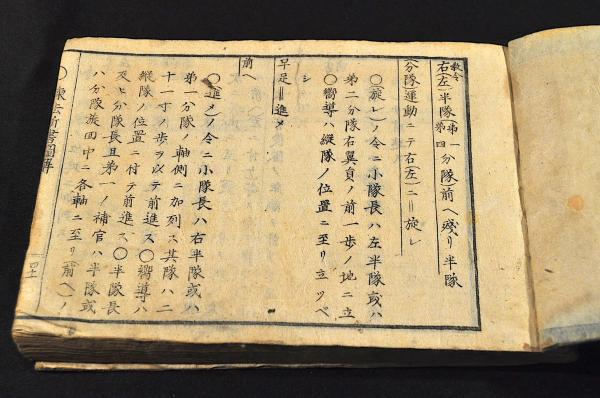 教令
右(左)半隊(第一四分隊)前ヘ残リ半隊
(分隊)運動ニテ右(左)ニ〢旋レ
○(旋レ)ノ令ニ小隊長ハ左半隊或ハ
第二分隊右翼頁ノ前一歩ノ地ニ立
○嚮導ハ縦隊ノ位置ニ至リ立ツベ
シ
早足〢進メ
○(進メ)ノ令ニ小隊長ハ右半隊或ハ
第一分隊ノ軸側ニ加列ス其隊ハ二
十一寸ノ歩ヲ以テ前進ス○嚮導ハ
縦隊ノ位置ニ付テ前進ス○半隊長
及ヒ分隊長且第一ノ補官ハ半隊或
ハ分隊旋回中ニ各軸ニ至リ(前ヘ)ノ
前ヘ